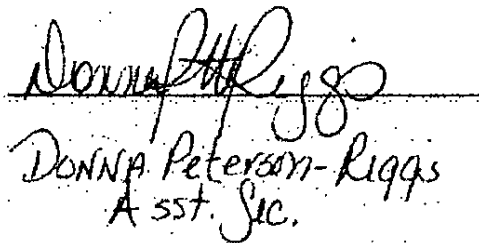 Donna P Riggs
Donna Peterson-Riggs
Asst. Sec.